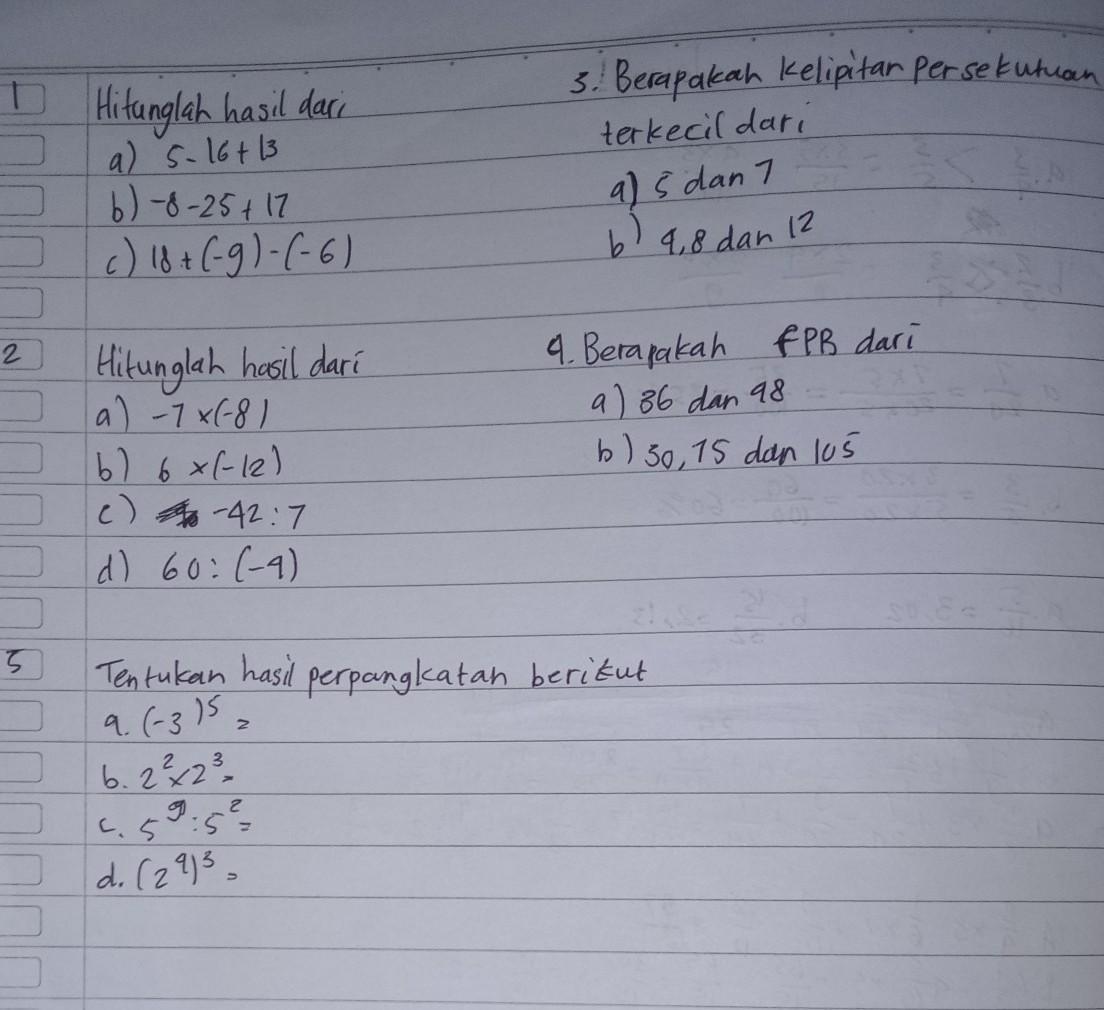 1 Hitunglah hasil dari
a) 5-16+13
b) -8-25+17
c) 18+(-9)-(-6)
2 Hitunglah hasil dari
a) -7×(-8)
b) 6×(-12)
c) -42:7
d) 60:(-4)
3. Berapakah Kelipitan Persekutuan
terkecil dari
a) 5 dan 7
b) 4,8 dan 12
4. Berapakah FPB dari
a) 36 dan 48
b) 30,75 dan 105
5 Tentukan hasil perpangkatan berikut
a. (-3)⁵=
b. 2²×2³=
c. 5⁹:5²=
d. (2⁴)³=